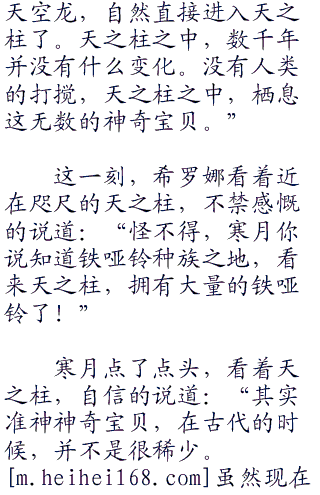 天空龙，自然直接进入天之
柱了。天之柱之中，数千年
并没有什么变化。没有人类
的打搅，天之柱之中，栖息
这无数的神奇宝贝。”
这一刻，希罗娜看着近
在咫尺的天之柱，不禁感慨
的说道：“怪不得，寒月你
说知道铁哑铃种族之地，看
来天之柱，拥有大量的铁哑
铃了！”
寒月点了点头，看着天
之柱，自信的说道：“其实
准神神奇宝贝，在古代的时
候，并不是很稀少。
[m.heihei168.com]虽然现在